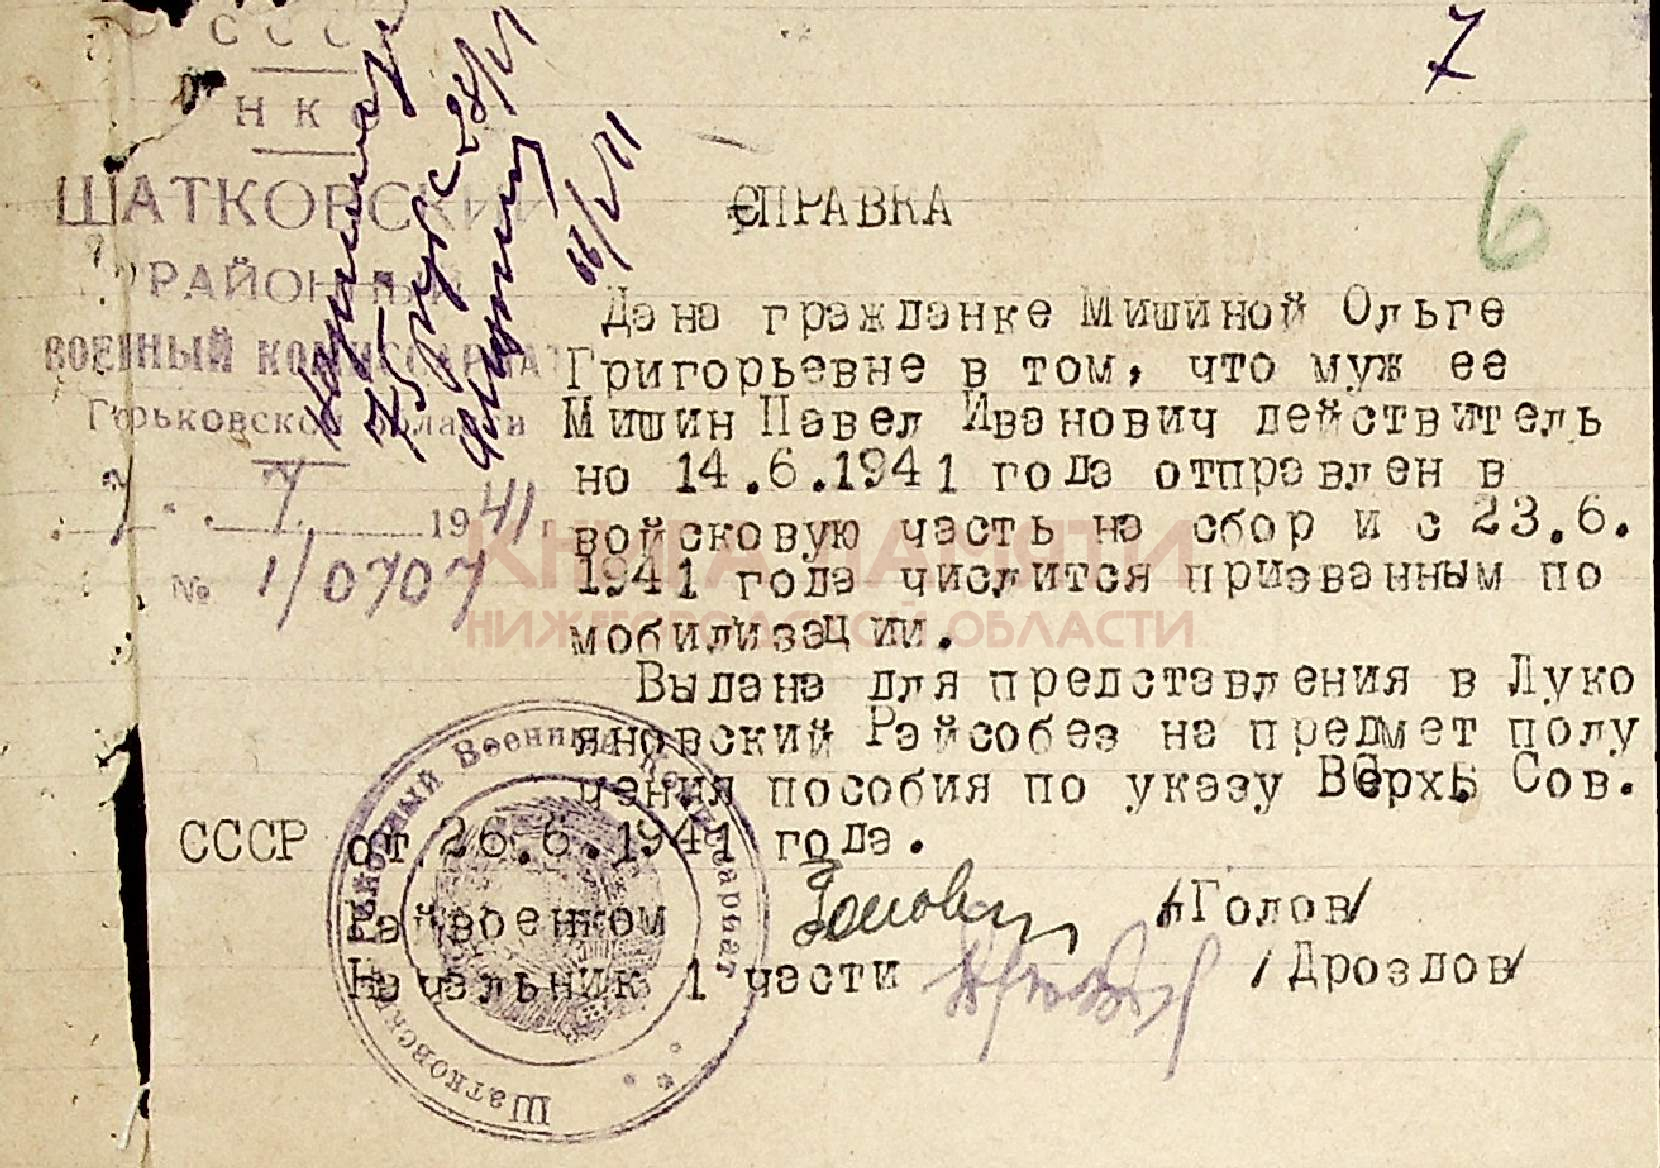 7
6
СССР
НКО
ШАТКОВСКИЙ
РАЙОННЫЙ
ВОЕННЫЙ КОМИССАРИАТ
Горьковской области
7 " 7 1941 г.
№ 1/0707
75 руб с 28/VI
СПРАВКА
Дана гражданке Мишиной Ольге
Григорьевне в том, что муж ее
Мишин Павел Иванович действитель
но 14.6.1941 года отправлен в
войсковую часть на сбор и с 23.6.
1941 года числится призванным по
мобилизации.
Выдана для представления в Луко
яновский Райсобез на предмет полу
чения пособия по указу Верх. Сов.
СССР от 26.6.1941 года.
Райвоенком /Голов/
Начальник 1 части /Дроздов/
Шатковский Районный Военный Комиссариат
КНИГА ПАМЯТИ
НИЖЕГОРОДСКОЙ ОБЛАСТИ